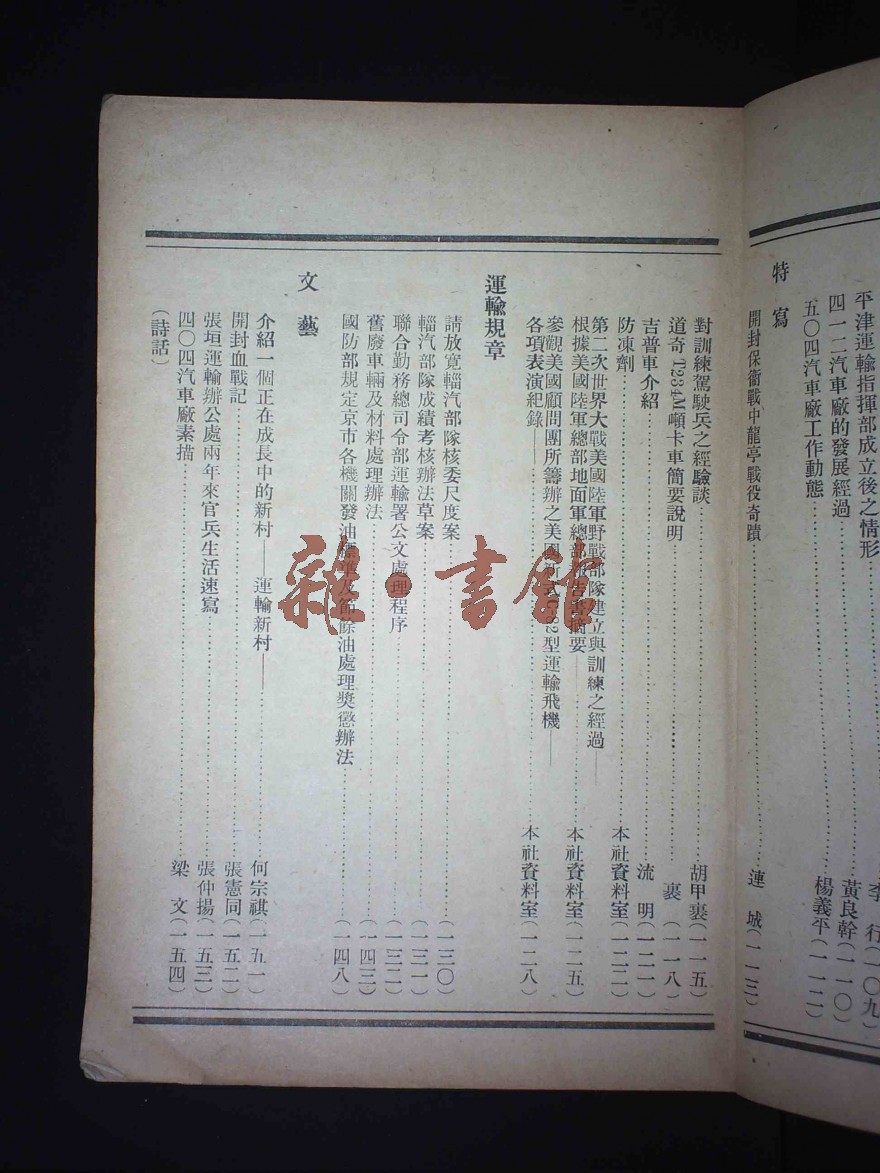 平津運輸指揮部成立後之情形……李　行(一〇九)
四一二汽車廠的發展經過……黃良幹(一一〇)
五〇四汽車廠工作動態……楊義平(一一二)
特　寫
開封保衛戰中龍亭戰役奇蹟……連　城(一一三)
對訓練駕駛兵之經驗談……胡甲裏(一一五)
道奇T234M噸卡車簡要說明……裏(一一八)
吉普車介紹……流　明(一二一)
防凍劑……本社資料室(一二二)
第二次世界大戰美國陸軍野戰部隊建立與訓練之經過——
根據美國陸軍總部地面軍總部報告書摘要——……本社資料室(一二五)
參觀美國顧問團所籌辦之美國　C-82型運輸飛機——
各項表演紀錄——……本社資料室(一二八)
運輸規章
請放寬輜汽部隊核委尺度案……(一三〇)
輜汽部隊成績考核辦法草案……(一三一)
聯合勤務總司令部運輸署公文處理程序……(一三二)
舊廢車輛及材料處理辦法……(一四三)
國防部規定京市各機關發油　及節餘油處理獎懲辦法……(一四八)
文　藝
介紹一個正在成長中的新村——運輸新村——……何宗祺(一五一)
開封血戰記……張憲同(一五二)
張垣運輸辦公處兩年來官兵生活速寫……張仲揚(一五三)
四〇四汽車廠素描……梁　文(一五四)
(詩話)
雜·書館